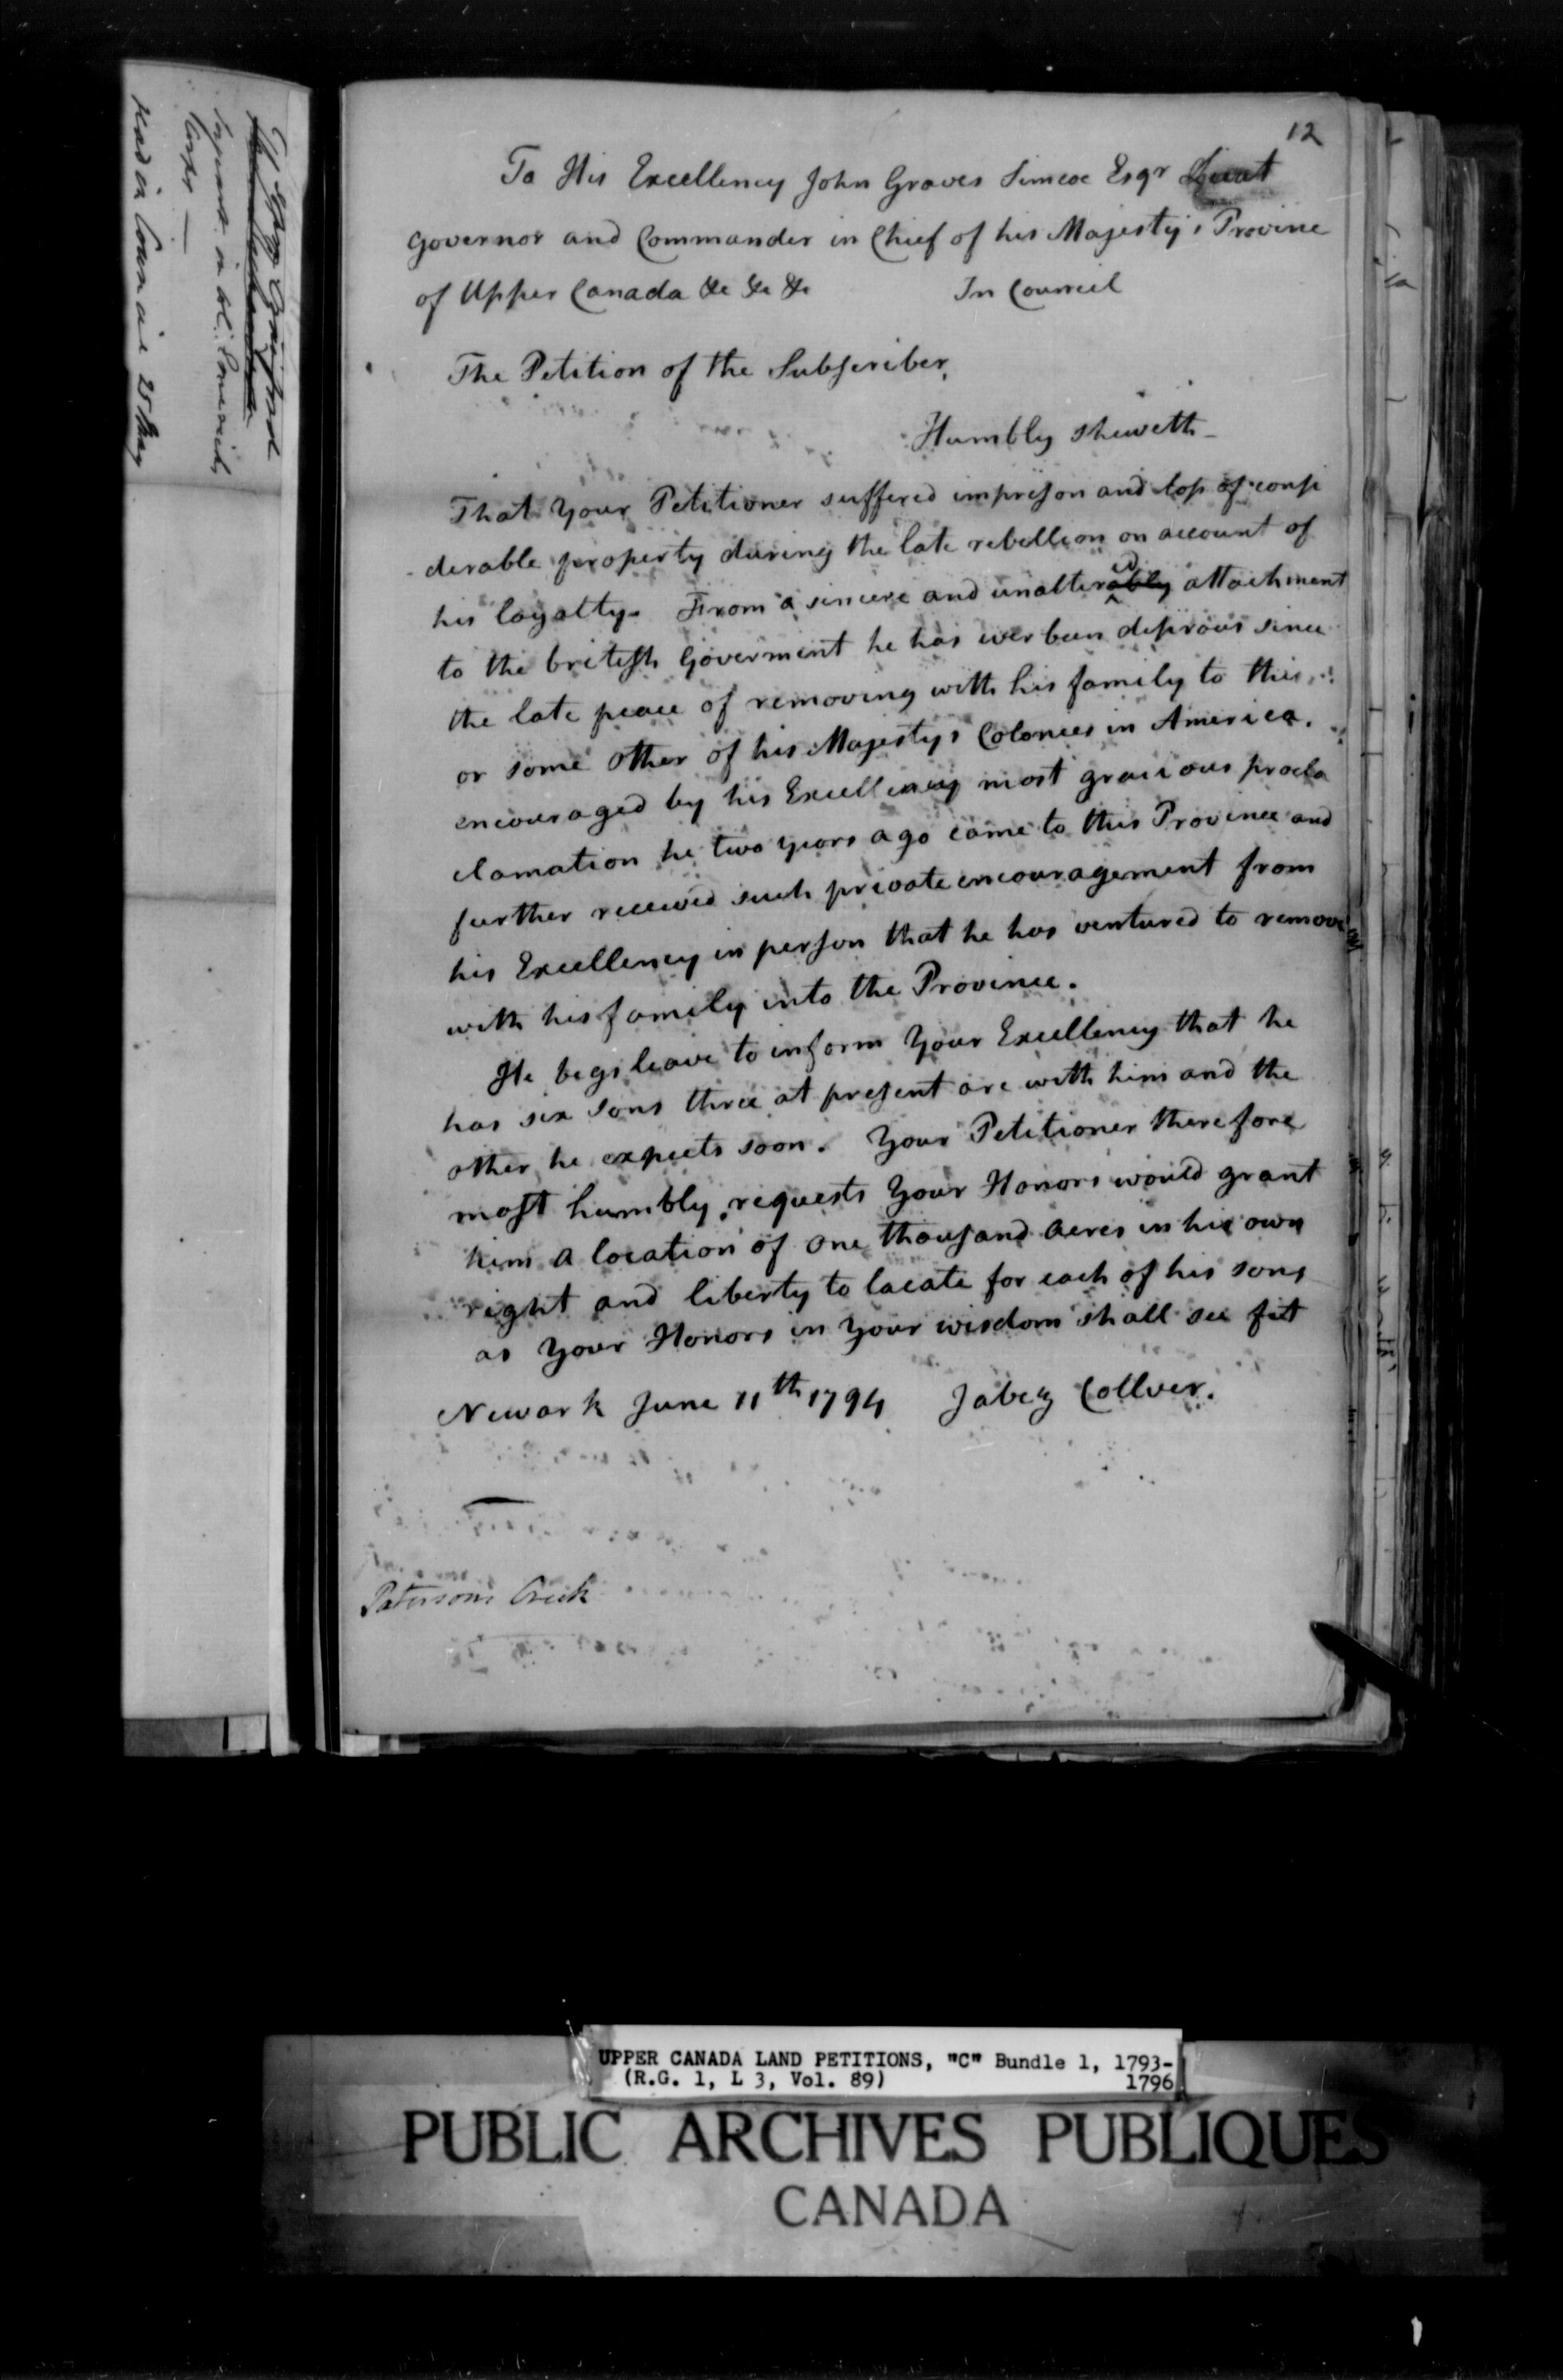 12
To His Excellency John Graves Simcoe Esqr Lieut
Governor and Commander in Chief of his Majesty's Province
of Upper Canada &c &c &c In Council
The Petition of the Subscriber,
Humbly sheweth
That Your Petitioner suffered imprison and loss of consi
derable property during the late rebellion on account of
his loyalty. From a sincere and unalterably ed attachment
to the british Goverment he has ever been desirous since
the late peace of removing with his family to this
or some other of his Majestys Colonies in America.
encouraged by his Excellency most gracious procla
clamation he two years ago came to this Province and
further received such private encouragement from
his Excellency in person that he has ventured to remove
with his family into the Province.
He begs leave to inform Your Excellency that he
has six sons three at present are with him and the
other he expects soon. Your Petitioner therefore
most humbly requests Your Honors would grant
him a location of one thousand acres in his own
right and liberty to locate for each of his sons
as Your Honors in Your wisdom shall see fit
Newark June 11th 1794 Jabez Collver.
Patersons Creek
Read in Council 25 May
UPPER CANADA LAND PETITIONS, "C" Bundle 1, 1793-
(R.G. 1, L 3, Vol. 89) 1796
PUBLIC ARCHIVES PUBLIQUES
CANADA